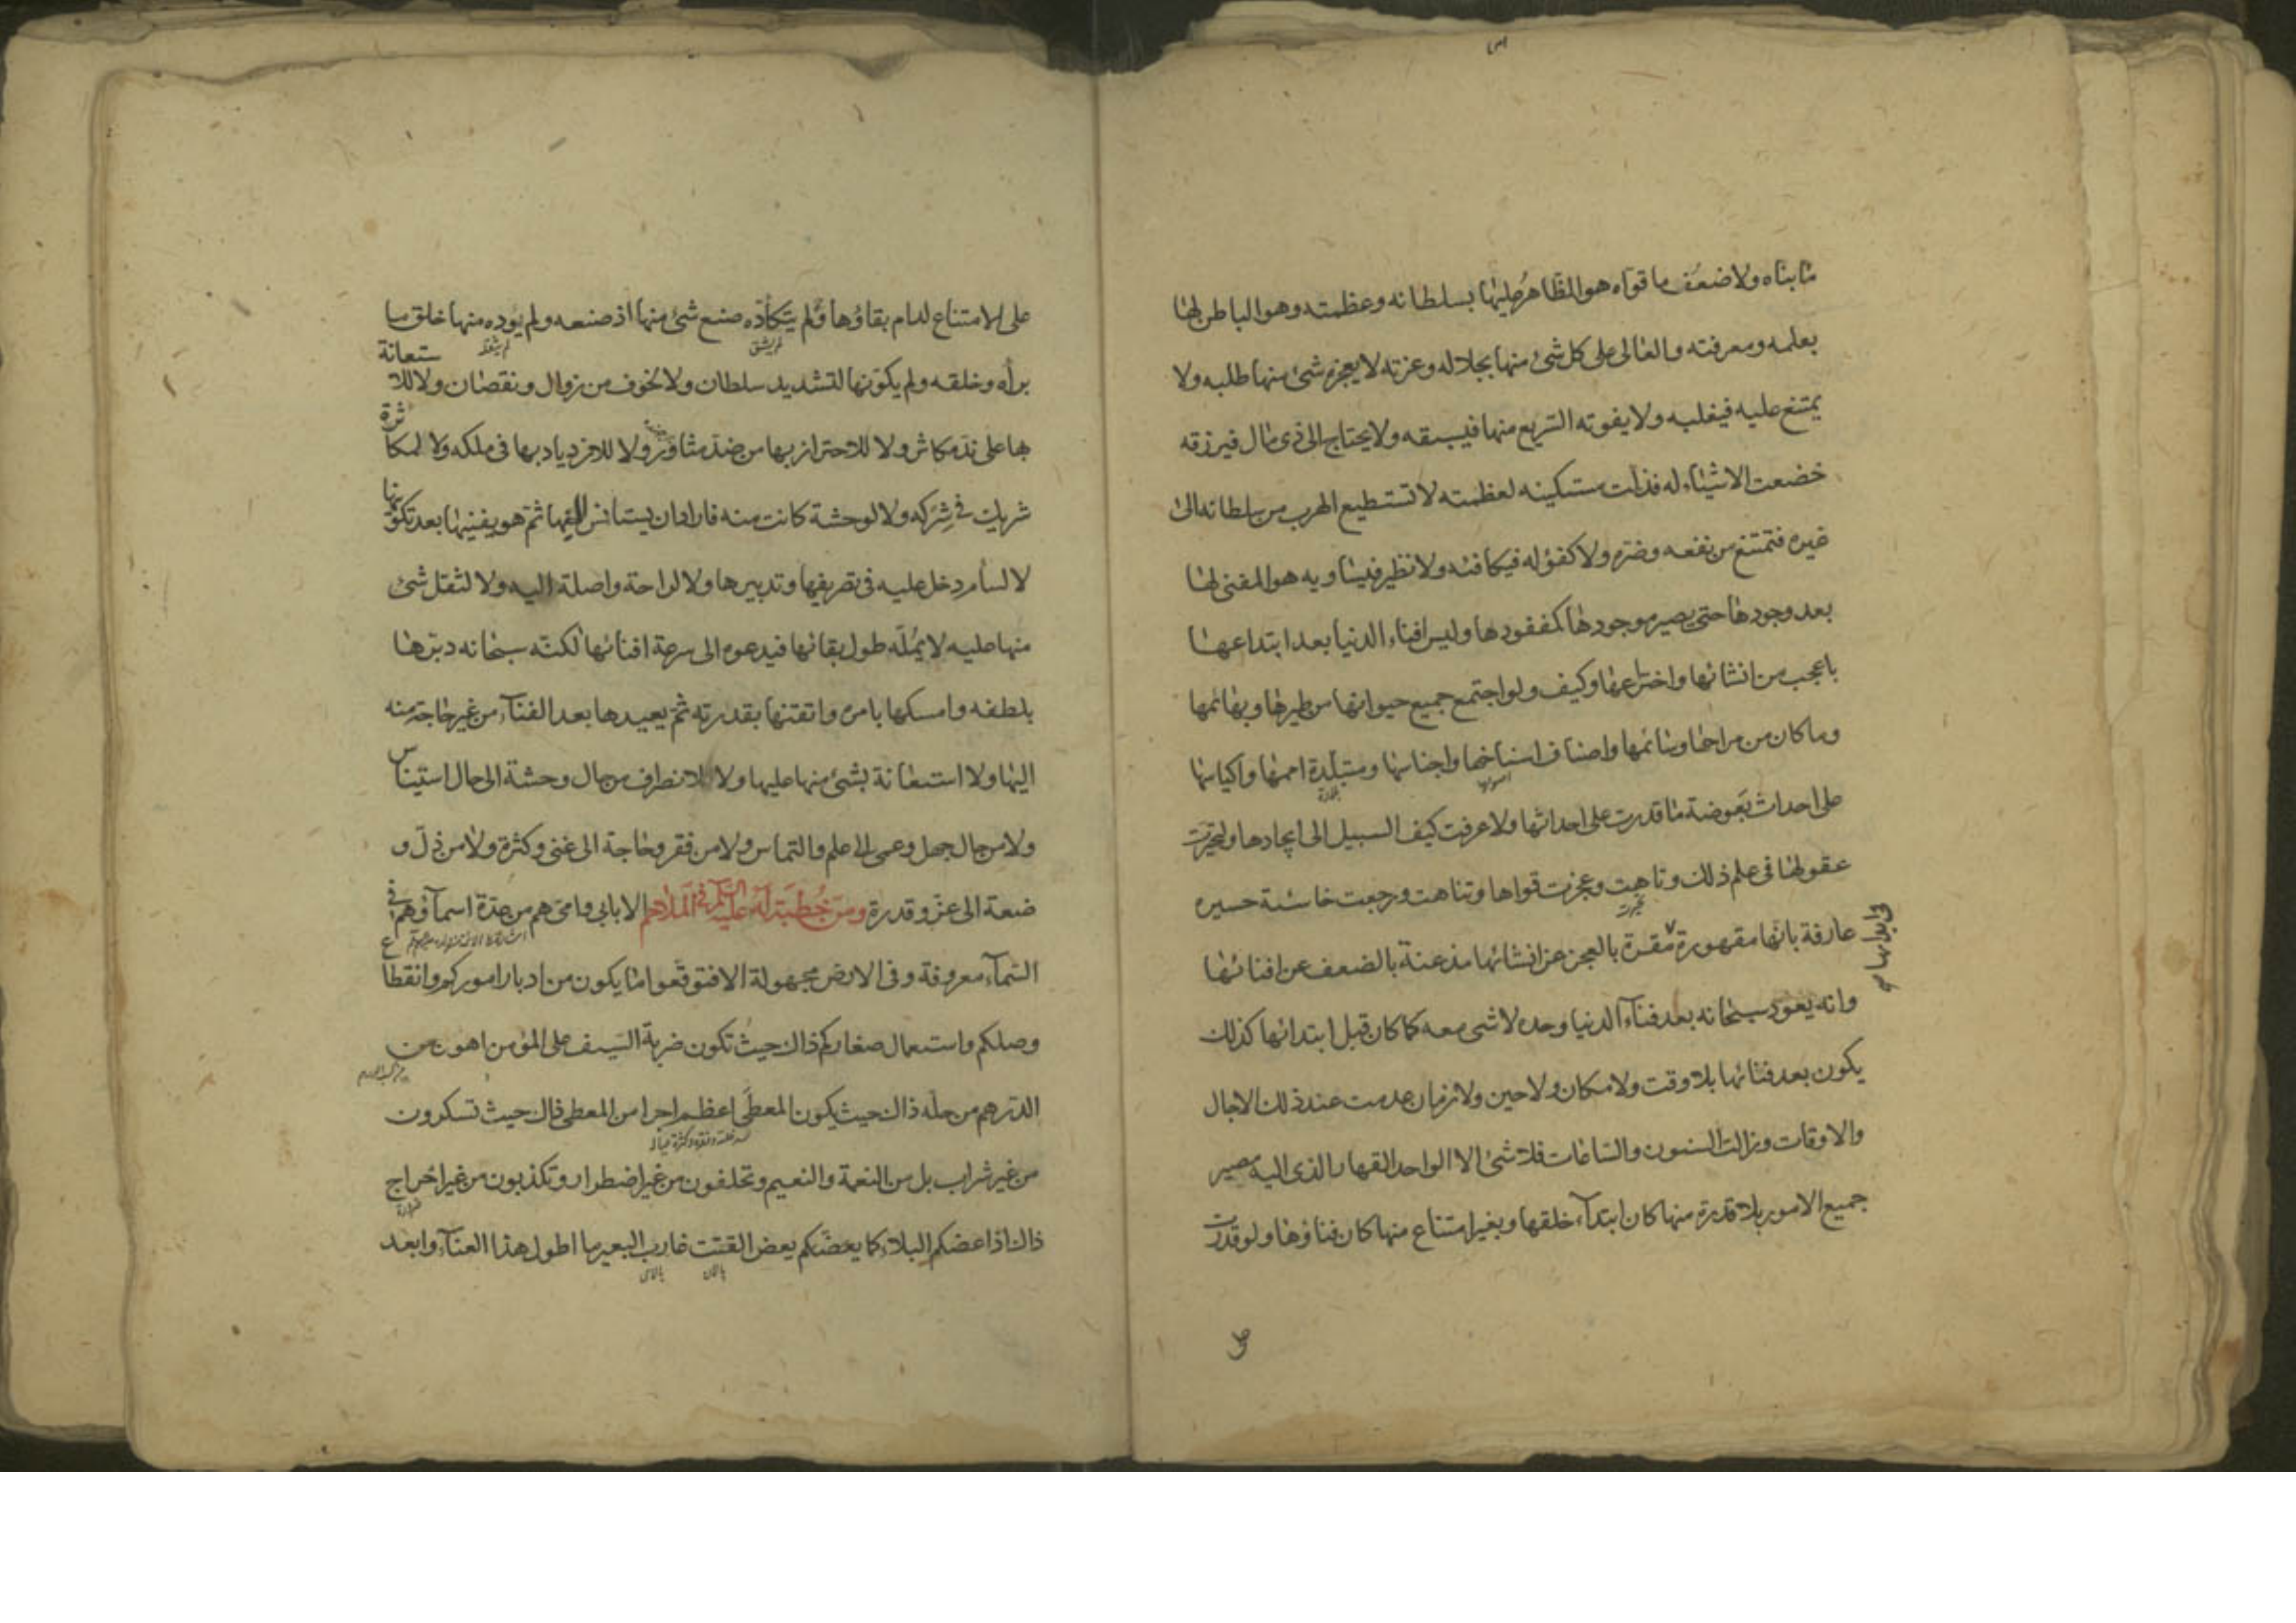 ما بناه ولا ضعف ما قواه هو الظاهر عليها بسلطانه وعظمته وهو الباطن لها
بعلمه ومعرفته والعالى على كل شئ منها بجلاله وعزته لا يعجزه شئ منها طلبه ولا
يمتنع عليه فيغلبه ولا يفوته السريع منها فيسبقه ولا يحتاج الى ذى مال فيرزقه
خضعت الاشياء له فذلت مستكينه لعظمته لا تستطيع الهرب من سلطانه الى
غيره فتمتنع من نفعه وضره ولا كفؤ له فيكافئه ولا نظير فيساويه هو المفنى لها
بعد وجودها حتى يصير موجودها كمفقودها وليس افناء الدنيا بعد ابتداعها
باعجب من انشائها واختراعها وكيف ولو اجتمع جميع حيوانها من طيرها وبهائمها
وما كان من مراحها وسائمها واصناف اسناخها واجناسها ومتبلدة اممها واكياسها
على احداث بعوضة ما قدرت على احداثها ولا عرفت كيف السبيل الى ايجادها ولتحيرت
عقولها فى علم ذلك وتاهت وعجزت قواها وتناهت ورجعت خاسئة حسيره
عارفة بانها مقهورة مقرة بالعجز عن انشائها مذعنة بالضعف عن افنائها
وانه يعود سبحانه بعد فناء الدنيا وحده لا شى معه كما كان قبل ابتدائها كذلك
يكون بعد فنائها بلا وقت ولا مكان ولا حين ولا زمان عدمت عند ذلك الاجال
والاوقات وزالت السنون والساعات فلا شئ الا الواحد القهار الذى اليه مصير
جميع الامور بلا قدرة منها كان ابتداء خلقها وبغير امتناع منها كان فناؤها ولو قدرت
على الامتناع لدام بقاؤها ولم يتكأده صنع شئ منها اذ صنعه ولم يوده منها خلق ما
لم يشق
برأه وخلقه ولم يكونها لتشديد سلطان ولا لخوف من زوال ونقصان ولا للاستعانة
بها على ند مكاثر ولا للاحتراز بها من ضد مثاور ولا للازدياد بها فى ملكه ولا لمكاثرة
شريك فى شركه ولا لوحشة كانت منه فاراد ان يستانس اليها ثم هو يفنيها بعد تكوينها
لا لسأم دخل عليه فى تصريفها وتدبيرها ولا لراحة واصلة اليه ولا لثقل شئ
منها عليه لا يمله طول بقائها فيدعوه الى سرعة افنائها لكنه سبحانه دبرها
بلطفه وامسكها بامره واتقنها بقدرته ثم يعيدها بعد الفناء من غير حاجة منه
اليها ولا استعانة بشئ منها عليها ولا لانصراف من حال وحشة الى حال استيناس
ولا من حال جهل وعمى الى علم والتماس ولا من فقر وحاجة الى غنى وكثرة ولا من ذل و
ضعة الى عز وقدرة ومن خطبة له عليه السلم فى الملاحم الا بابى وامى هم من عدة اسماؤهم فى
السماء معروفة وفى الارض مجهولة الا فتوقعوا ما يكون من ادبار اموركم وانقطاع
وصلكم واستعمال صغاركم ذاك حيث تكون ضربة السيف على المؤمن اهون من
الدرهم من حله ذاك حيث يكون المعطى اعظم اجرا من المعطى ذاك حيث تسكرون
من غير شراب بل من النعمة والنعيم وتحلفون من غير اضطرار وتكذبون من غير احراج
ذاك اذا عضكم البلاء كما يعض القتب غارب البعير ما اطول هذا العناء وابعد